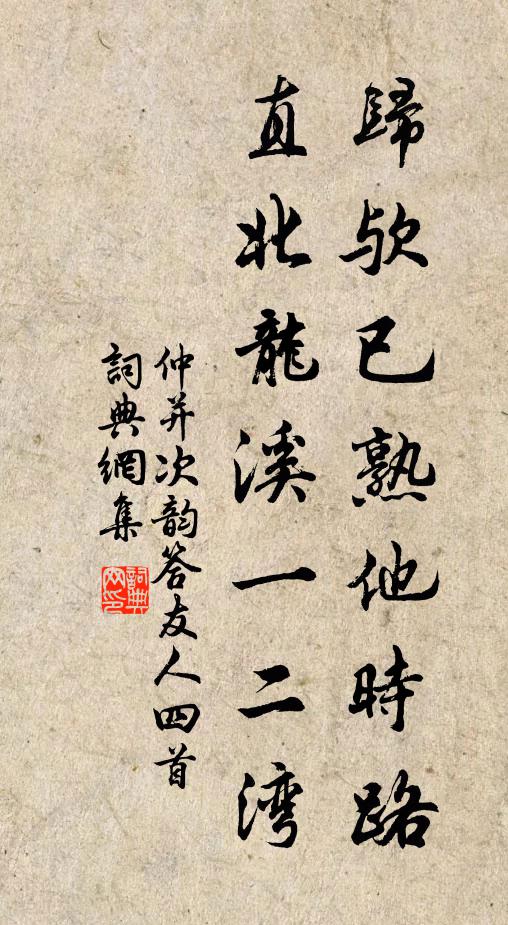 歸欤已熟他時路
直北龍溪一二湾
仲并次韵答友人四首
詞典網集
詞典網印